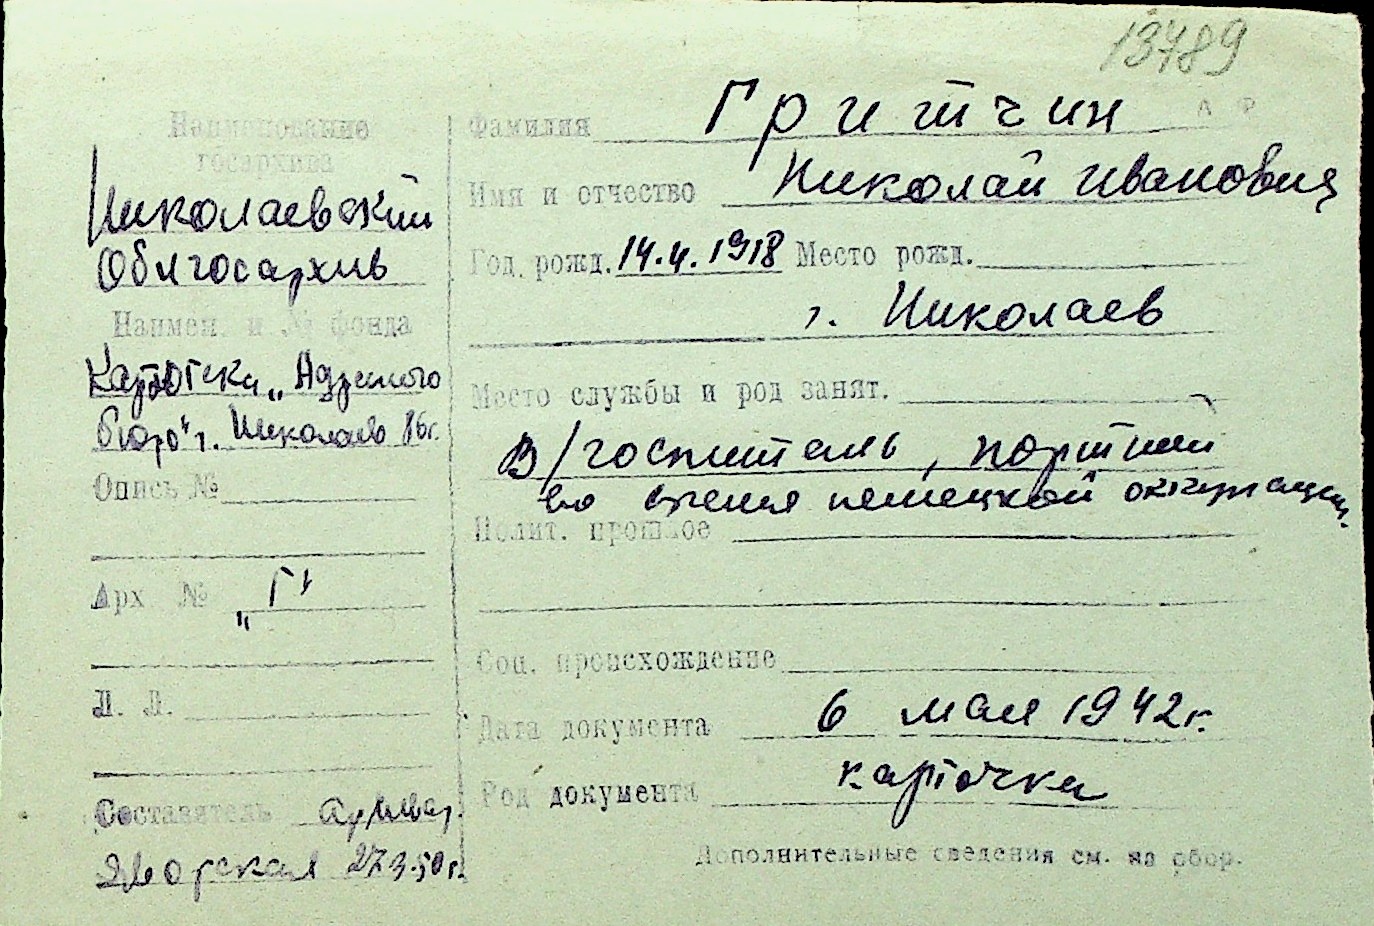 13789
Наименование
госархива
Николаевский
Облгосархив
Наимен. и № фонда
Картотека „Адресного
бюро" г. Николаев
Опись №
Арх № „Г"
Л. Л.
Составитель архивар.
Яворская 27.3.50г.
Фамилия Гритчин
Имя и отчество Николай Иванович
Год. рожд. 14.4.1918 Место рожд.
г. Николаев
Место службы и род занят.
В/госпиталь, портной
во время немецкой оккупации.
Полит. прошлое
Соц. происхождение
Дата документа 6 мая 1942г.
Род документа карточка
Дополнительные сведения см. на обор.